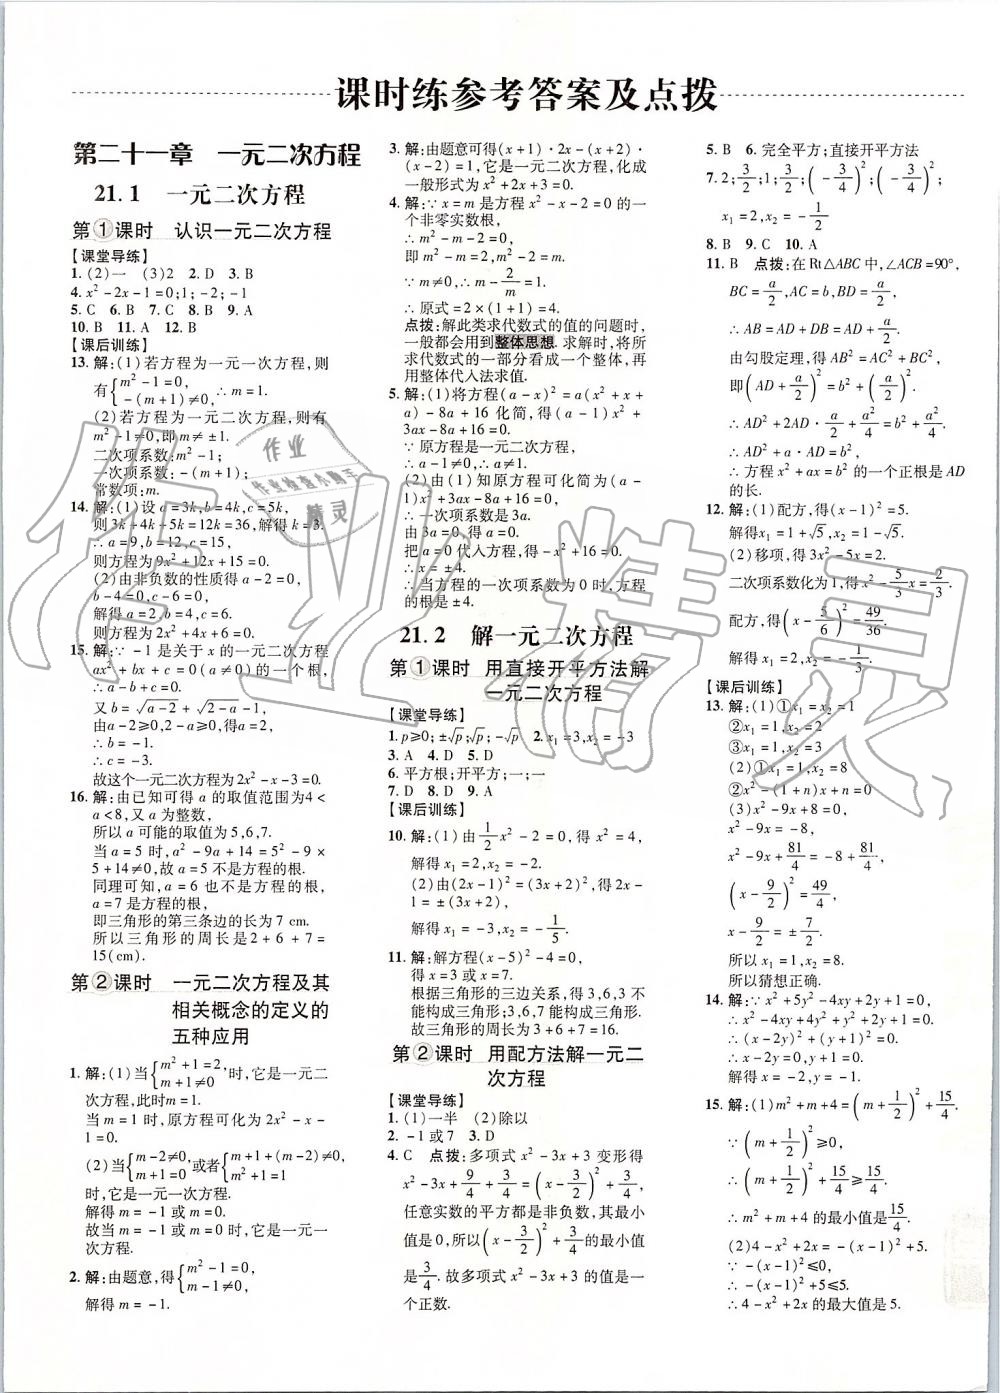 课时练参考答案及点拨
第二十一章　一元二次方程
21.1　一元二次方程
第①课时　认识一元二次方程
【课堂导练】
1.(2)一　(3)2　2.D　3.B
4.x²-2x-1=0;1;-2;-1
5.C　6.B　7.C　8.B　9.A
10.B　11.A　12.B
【课后训练】
13.解:(1)若方程为一元一次方程,则
有{m²-1=0, -(m+1)≠0.
(2)若方程为一元二次方程,则有
m²-1≠0,即m≠±1.
二次项系数:m²-1;
一次项系数:-(m+1);
常数项:m.
14.解:(1)设a=3k,b=4k,c=5k,
则3k+4k+5k=12k=36,解得k=3.
∴a=9,b=12,c=15,
则方程为9x²+12x+15=0.
(2)由非负数的性质得a-2=0,
b-4=0,c-6=0,
解得a=2,b=4,c=6.
则方程为2x²+4x+6=0.
15.解:∵-1是关于x的一元二次方程
ax²+bx+c=0(a≠0)的一个根,
∴a-b+c=0.
又b=√(a-2)+√(2-a)-1,
由a-2≥0,2-a≥0,得a=2.
∴b=-1.
∴c=-3.
故这个一元二次方程为2x²-x-3=0.
16.解:由已知可得a的取值范围为4<
a<8,又a为整数,
所以a可能的取值为5,6,7.
当a=5时,a²-9a+14=5²-9×
5+14≠0,故a=5不是方程的根.
同理可知,a=6也不是方程的根,
a=7是方程的根,
即三角形的第三条边的长为7 cm.
所以三角形的周长是2+6+7=
15(cm).
第②课时　一元二次方程及其
相关概念的定义的
五种应用
1.解:(1)当{m²+1=2, m+1≠0时,它是一元二
次方程,此时m=1.
当m=1时,原方程可化为2x²-x-
1=0.
(2)当{m-2≠0, m+1=0或者{m+1+(m-2)≠0, m²+1=1
时,它是一元一次方程.
解得m=-1或m=0.
故当m=-1或m=0时,它是一元一
次方程.
2.解:由题意,得{m²-1=0, m-1≠0,
解得m=-1.
3.解:由题意可得(x+1)·2x-(x+2)·
(x-2)=1,它是一元二次方程,化成
一般形式为x²+2x+3=0.
4.解:∵x=m是方程x²-x-2=0的一
个非零实数根,
∴m²-m-2=0,
即m²-m=2,m²-2=m.
∵m≠0,∴m-2/m=1.
∴原式=2×(1+1)=4.
点拨:解此类求代数式的值的问题时,
一般都会用到整体思想.求解时,将所
求代数式的一部分看成一个整体,再
用整体代入法求值.
5.解:(1)将方程(a-x)²=a(x²+x+
a)-8a+16化简,得(a-1)x²+
3ax-8a+16=0.
∵原方程是一元二次方程,
∴a-1≠0,∴a≠1.
(2)由(1)知原方程可化简为(a-
1)x²+3ax-8a+16=0,
∴一次项系数是3a.
由3a=0,得a=0.
把a=0代入方程,得-x²+16=0.
∴x=±4.
∴当方程的一次项系数为0时,方程
的根是±4.
21.2　解一元二次方程
第①课时　用直接开平方法解
一元二次方程
【课堂导练】
1.p≥0;±√p;√p;-√p　2.x₁=3,x₂=-3
3.A　4.D　5.D
6.平方根;开平方;一;一
7.D　8.D　9.A
【课后训练】
10.解:(1)由1/2x²-2=0,得x²=4,
解得x₁=2,x₂=-2.
(2)由(2x-1)²=(3x+2)²,得2x
-1=±(3x+2),
解得x₁=-3,x₂=-1/5.
11.解:解方程(x-5)²-4=0,
得x=3或x=7.
根据三角形的三边关系,得3,6,3不
能构成三角形;3,6,7能构成三角形.
故三角形的周长为3+6+7=16.
第②课时　用配方法解一元二
次方程
【课堂导练】
1.(1)一半　(2)除以
2.-1或7　3.D
4.C　点拨:多项式x²-3x+3变形得
x²-3x+9/4+3/4=(x-3/2)²+3/4,
任意实数的平方都是非负数,其最小
值是0,所以(x-3/2)²+3/4的最小值
是3/4.故多项式x²-3x+3的值是一
个正数.
5.B　6.完全平方;直接开平方法
7.2;3/2;1;3/2;(-3/4)²;(-3/4)²;
x₁=0=-1,x₂=-1/2
8.B　9.C　10.A
11.B　点拨:在Rt△ABC中,∠ACB=90°,
BC=a/2,AC=b,BD=a/2,
∴AB=AD+DB=AD+a/2.
由勾股定理,得AB²=AC²+BC²,
即(AD+a/2)²=b²+(a/2)²,
∴AD²+2AD·a/2+a²/4=b²+a²/4,
∴AD²+a·AD=b².
∴方程x²+ax=b²的一个正根是AD
的长.
12.解:(1)配方,得(x-1)²=5.
解得x₁=1+√5,x₂=1-√5.
(2)移项,得3x²-5x=2.
二次项系数化为1,得x²-5/3x=2/3.
配方,得(x-5/6)²=49/36.
解得x₁=2,x₂=-1/3.
【课后训练】
13.解:(1)①x₁=x₂=1
②x₁=1,x₂=2
③x₁=1,x₂=3
(2)①x₁=1,x₂=8
②x²-(1+n)x+n=0
(3)x²-9x+8=0,
x²-9x=-8,
x²-9x+81/4=-8+81/4,
(x-9/2)²=49/4,
x-9/2=±7/2.
所以x₁=1,x₂=8.
所以猜想正确.
14.解:∵x²+5y²-4xy+2y+1=0,
∴x²-4xy+4y²+y²+2y+1=0,
∴(x-2y)²+(y+1)²=0.
∴x-2y=0,y+1=0.
解得x=-2,y=-1.
15.解:(1)m²+m+4=(m+1/2)²+15/4.
∵(m+1/2)²≥0,
∴(m+1/2)²+15/4≥15/4.
∴m²+m+4的最小值是15/4.
(2)4-x²+2x=-(x-1)²+5.
∵-(x-1)²≤0,
∴-(x-1)²+5≤5.
∴4-x²+2x的最大值是5.